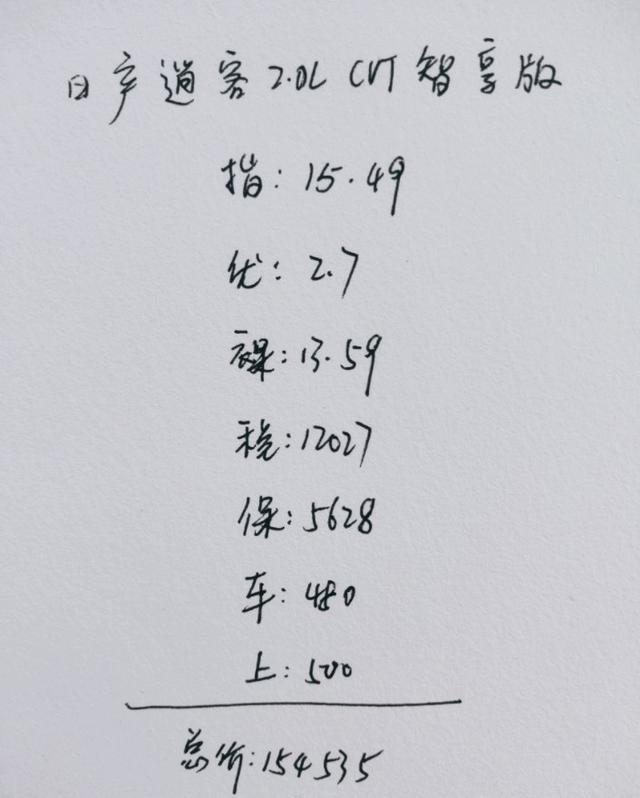 日产逍客2.0L CVT智享版
指:15.49
优:2.7
裸:13.59
税:12027
保:5628
车:480
上:500
总价:154535